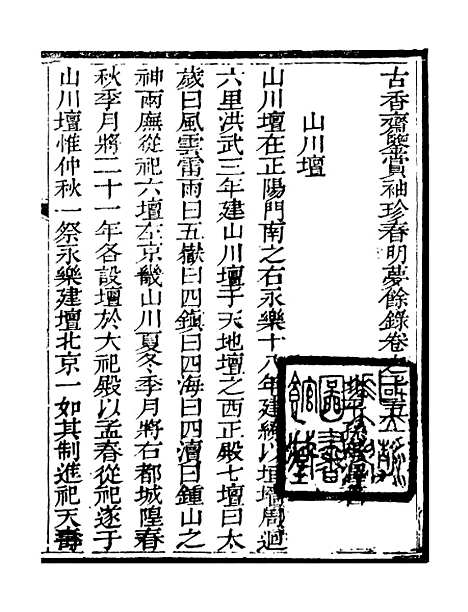 古香齋鑒賞袖珍春明夢餘錄卷之十五
山川壇
山川壇在正陽門南之右永樂十八年建繚以垣墻周迴
六里洪武三年建山川壇于天地壇之西正殿七壇曰太
歲曰風雲雷雨曰五嶽曰四鎮曰四海曰四瀆曰鍾山之
神兩廡從祀六壇左京畿山川夏冬季月將右都城隍春
秋季月將二十一年各設壇於大祀殿以孟春從祀遂于
山川壇惟仲秋一祭永樂建壇北京一如其制進祀天壽